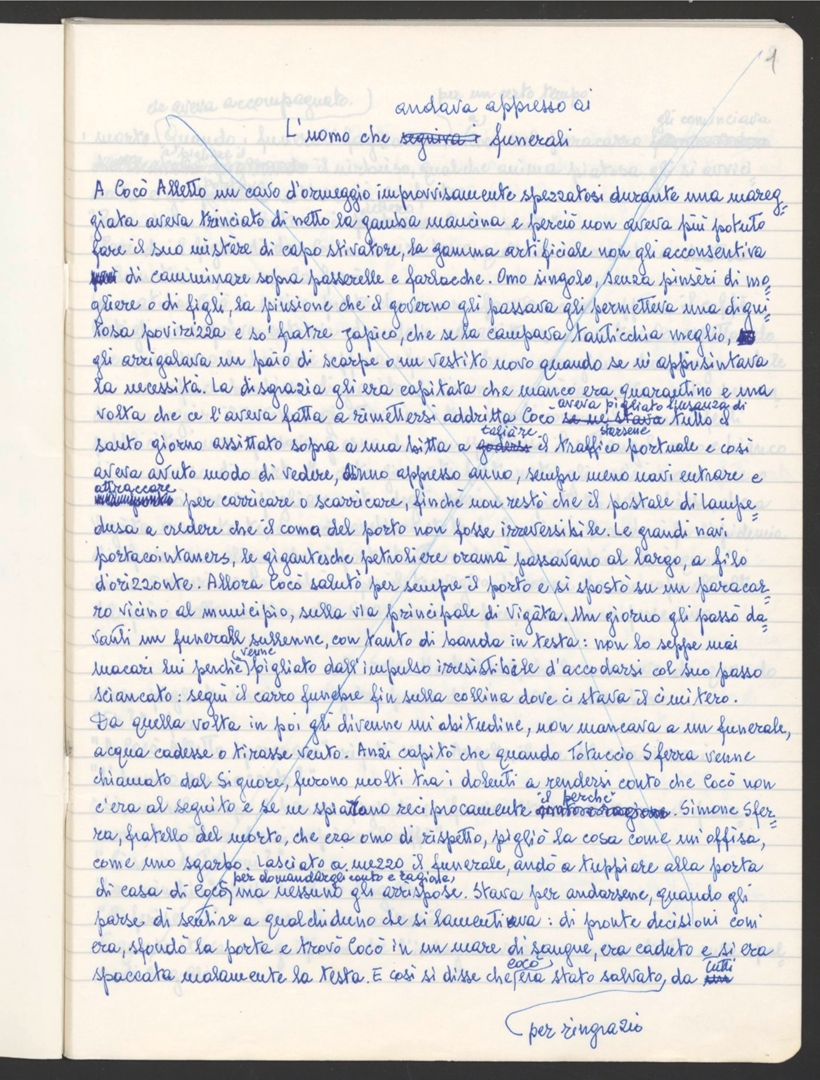 1
andava appresso ai
L'uomo che seguiva i funerali
A Cocò Alletto un cavo d'ormeggio improvvisamente spezzatosi durante una mareg=
giata aveva trinciato di netto la gamba mancina e perciò non aveva più potuto
fare il suo mistère di capo stivatore, la gamma artificiale non gli acconsentiva
di camminare sopra passerelle e farlacche. Omo singolo, senza pinsèri di mo=
gliere o di figli, la pinsione che il governo gli passava gli permetteva una digni=
tosa povirizza e so' fratre Japico, che se la campava tanticchia meglio,
gli arrigalava un paio di scarpe o un vestito novo quando se n'appisintava
la necessità. La disgrazia gli era capitata che manco era quarantino e una
aveva pigliato l'usanza di
volta che ce l'aveva fatta a rimettersi addritta Cocò se ne stava tutto il
taliare starsene
santo giorno assittato sopra a una bitta a godersi il traffico portuale e così
aveva avuto modo di vedere, anno appresso anno, sempre meno navi entrare e
attraccare
per carricare o scarricare, finché non restò che il postale di Lampe=
dusa a credere che il coma del porto non fosse irreversibile. Le grandi navi
portacointaners, le gigantesche petroliere oramà passavano al largo, a filo
d'orizzonte. Allora Cocò salutò per sempre il porto e si spostò su un paracar=
ro vicino al municipio, sulla via principale di Vigàta. Un giorno gli passò da=
vanti un funerale sullenne, con tanto di banda in testa: non lo seppe mai
venne
macari lui perché pigliato dall'impulso irresistibile d'accodarsi col suo passo
sciancato: seguì il carro funebre fin sulla collina dove ci stava il cimitero.
Da quella volta in poi gli divenne un'abitudine, non mancava a un funerale,
acqua cadesse o tirasse vento. Anzi capitò che quando Totuccio Sferra venne
chiamato dal Signore, furono molti tra i dolenti a rendersi conto che Cocò non
il perché
c'era al seguito e se ne spiarono reciprocamente. Simone Sfer=
ra, fratello del morto, che era omo di rispetto, pigliò la cosa come un'offisa,
come uno sgarbo. Lasciato a mezzo il funerale, andò a tuppiare alla porta
per domandargli conto e ragione,
di casa di Cocò, ma nessuno gli arrispose. Stava per andarsene, quando gli
parse di sentire a qualchiduno che si lamentiava: di pronte decisioni com'
era, sfondò la porta e trovò Cocò in un mare di sangue, era caduto e si era
spaccata malamente la testa. E così si disse che era stato salvato, da
Cocò tutti
per ringrazio